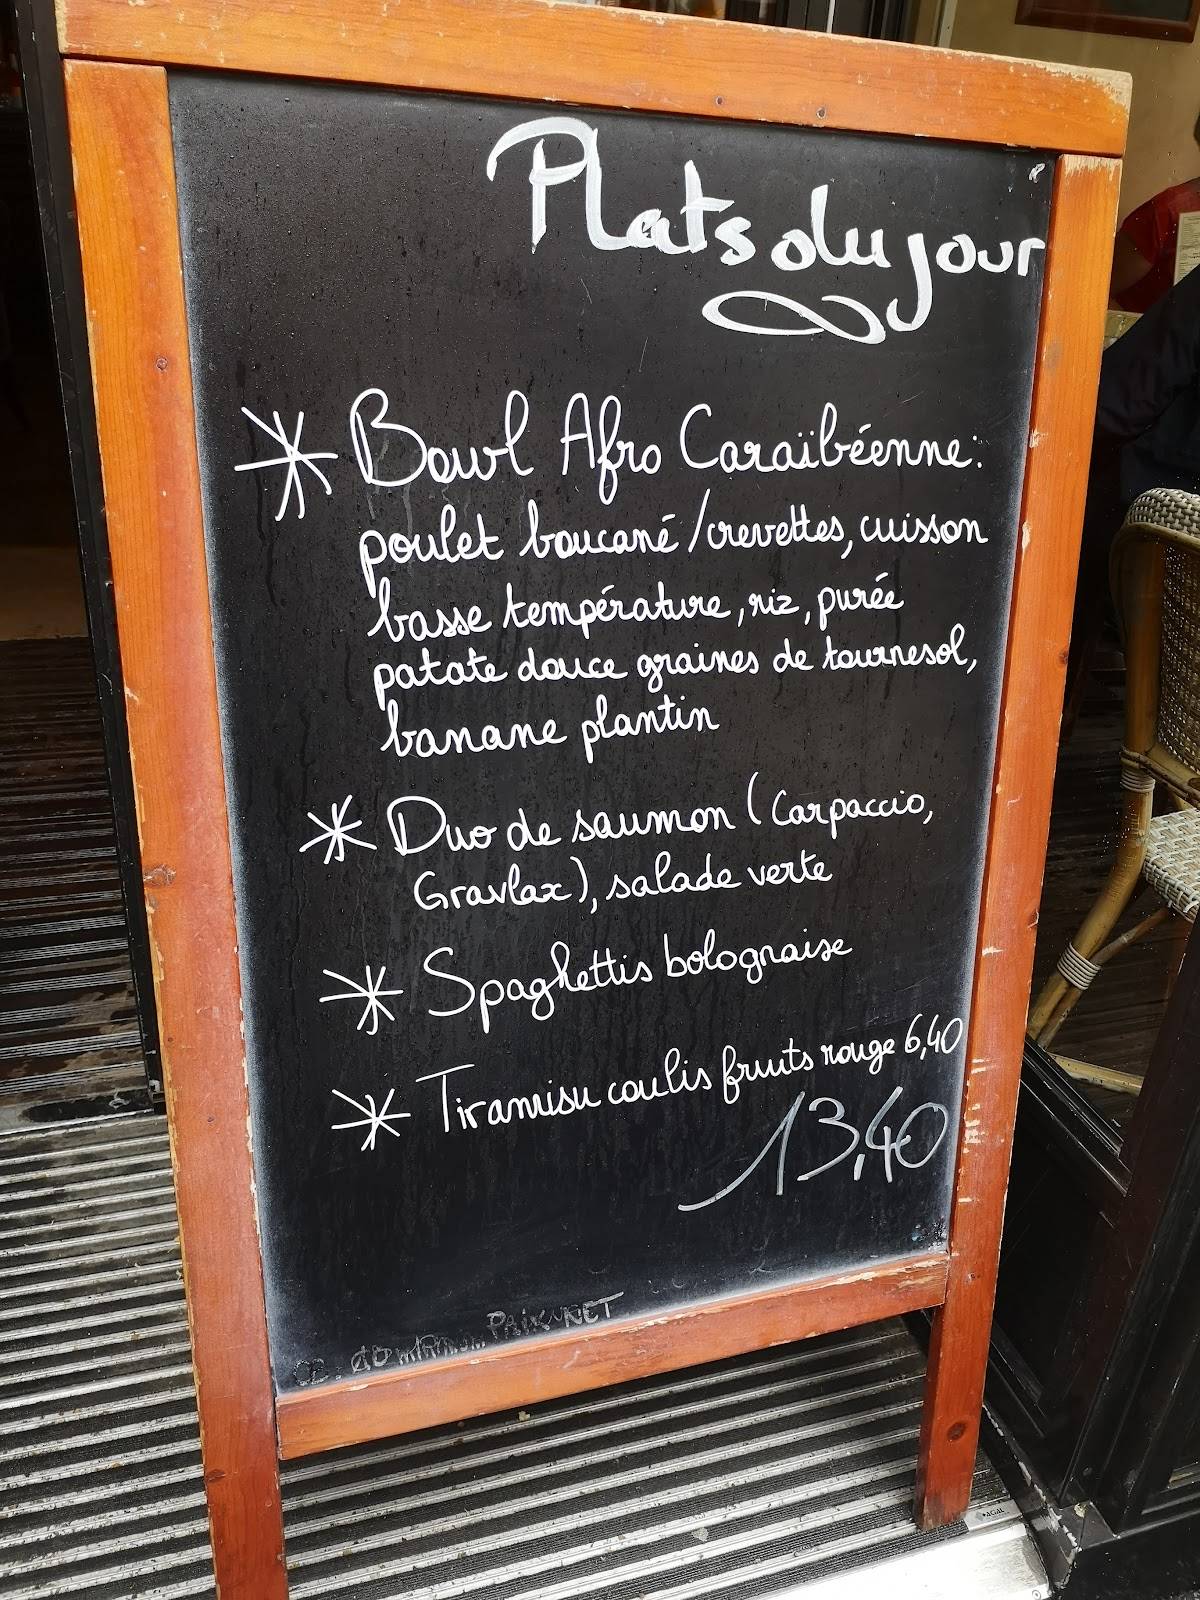 Plats du jour
Bowl Afro Caraïbéenne:
poulet boucané / crevettes, cuisson
basse température, riz, purée
patate douce graines de tournesol,
banane plantin
Duo de saumon (Carpaccio,
Gravlax), salade verte
Spaghettis bolognaise
Tiramisu coulis fruits rouge 6,40
13,40